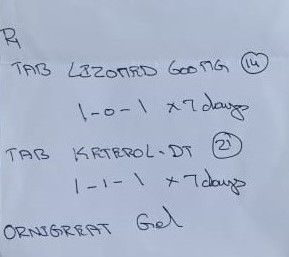 Rx
TAB LIZOMED 600MG (14)
1-0-1 x 7 days
TAB KETEROL-DT (21)
1-1-1 x 7 days
ORNIGREAT Gel